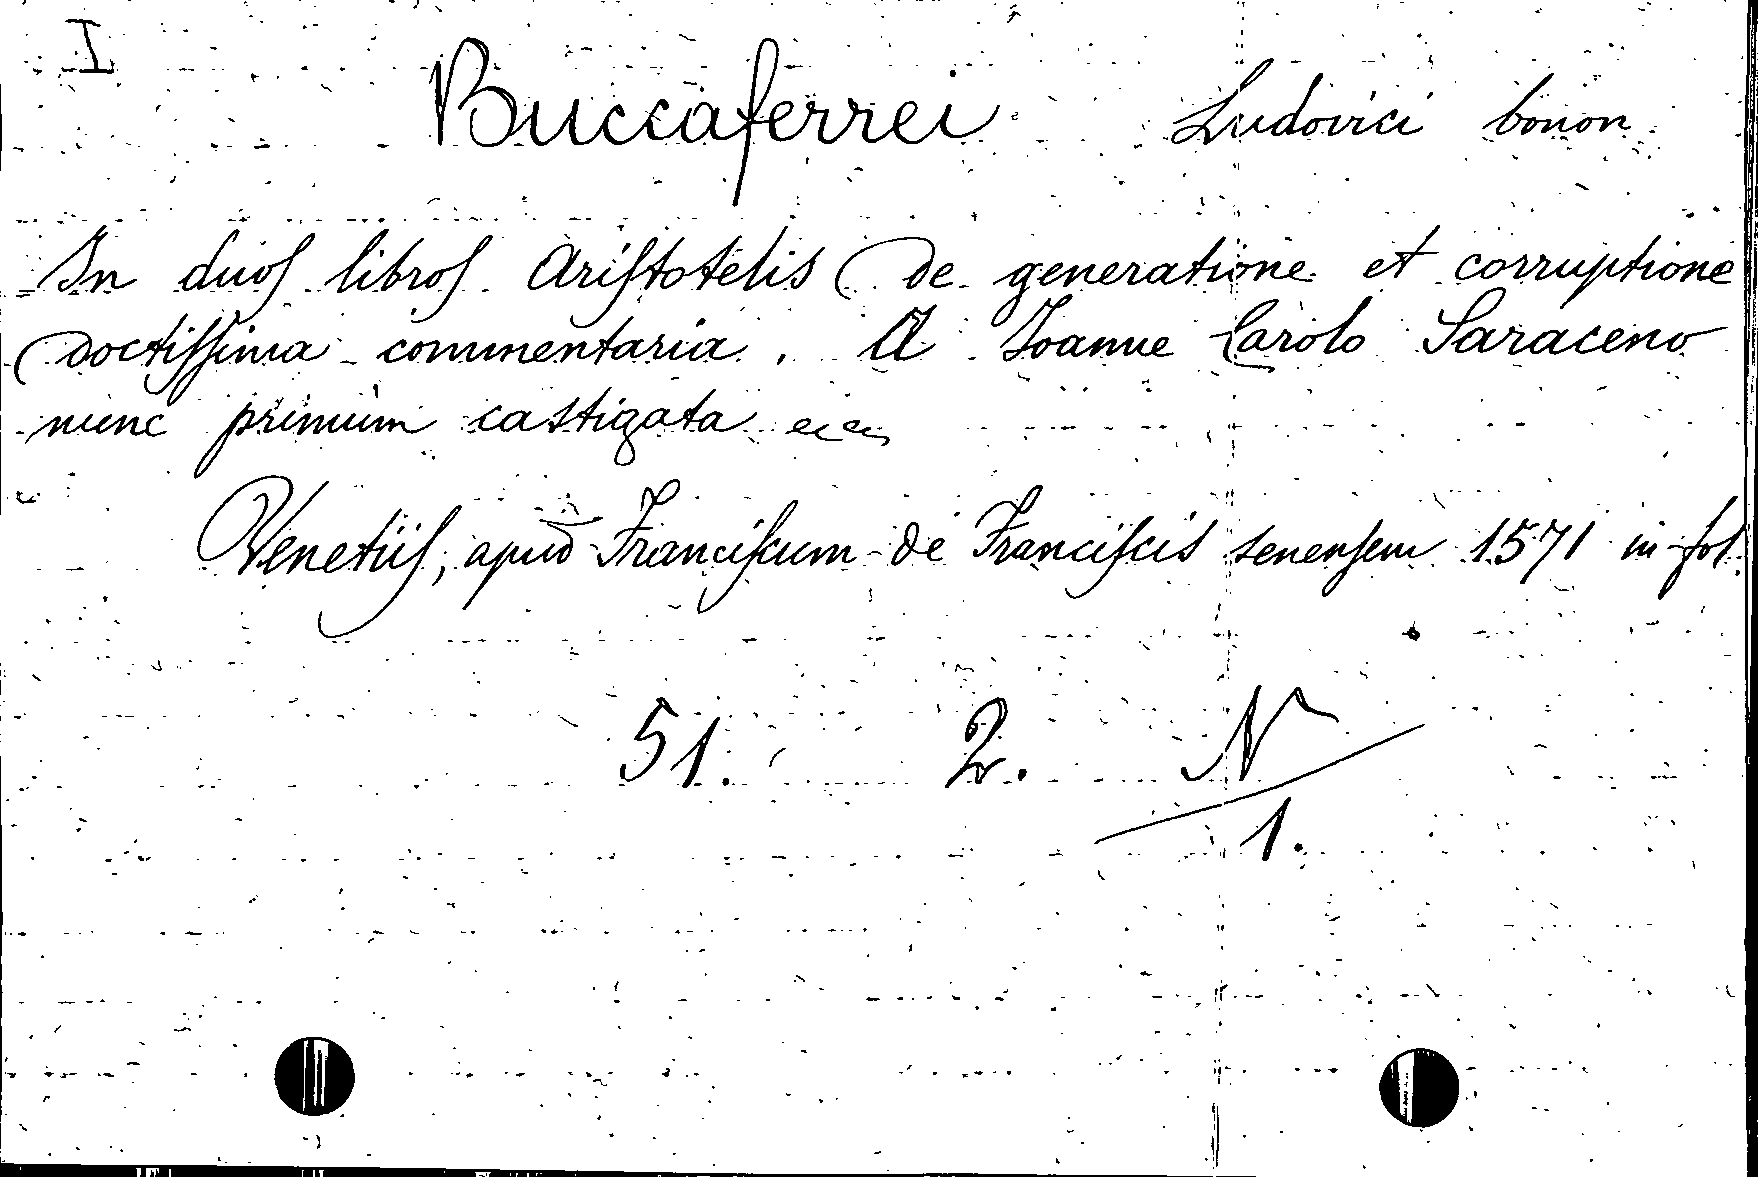 I
Buccaferrei Ludovici bonon.
In duos libros Aristotelis de generatione et corruptione
doctissima commentaria. A Joanne Carolo Saraceno
nunc primum castigata
Venetiis, apud Franciscum de Franciscis senensem 1571 in fol.
51. 2. N
1.